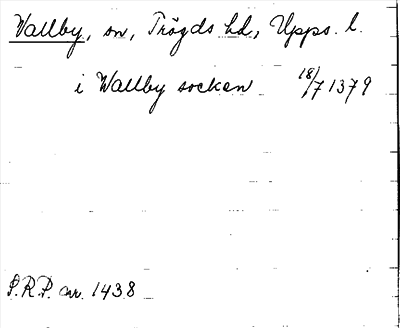 Vallby, sn, Trögds hd, Upps. l.
i Wallby socken 18/7 1379
S.R.P. nr. 1438